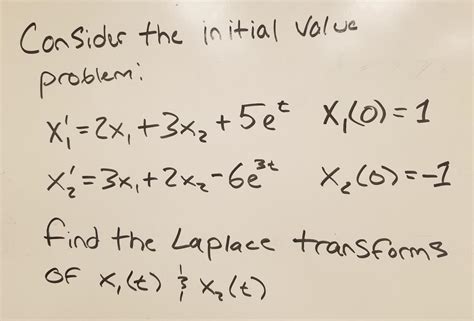 Consider the initial value
problem:
x₁' = 2x₁ + 3x₂ + 5eᵗ   x₁(0) = 1
x₂' = 3x₁ + 2x₂ - 6e³ᵗ   x₂(0) = -1
find the Laplace transforms
of x₁(t) & x₂(t)